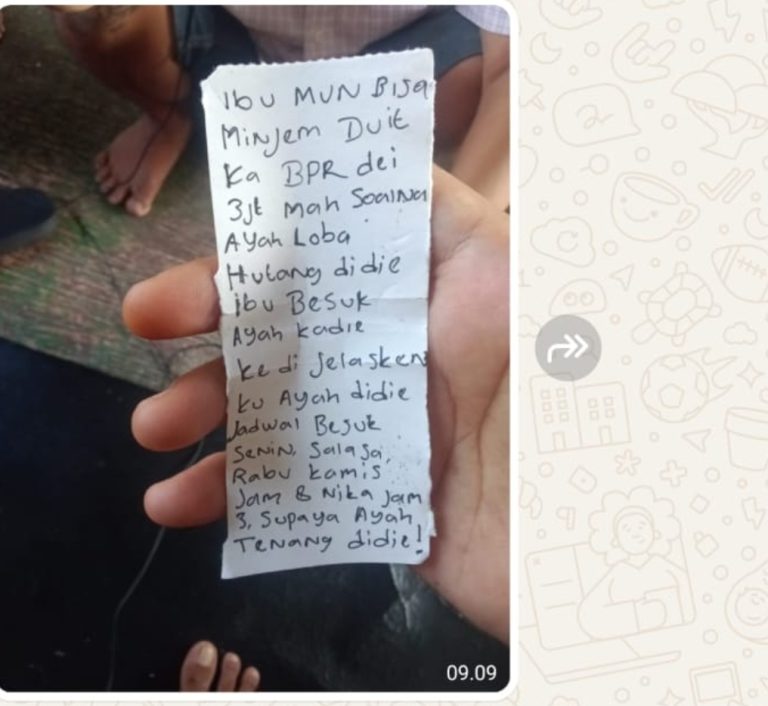 Ibu MUN Bisa
Minjem Duit
Ka BPR dei
3jt mah Soalna
Ayah Loba
Hutang didie
ibu Besuk
Ayah kadie
ke di jelasken
ku Ayah didie
Jadwal Besuk
Senin, Salasa,
Rabu kamis
Jam 8 Nika Jam
3, Supaya Ayah
Tenang didie!
09.09